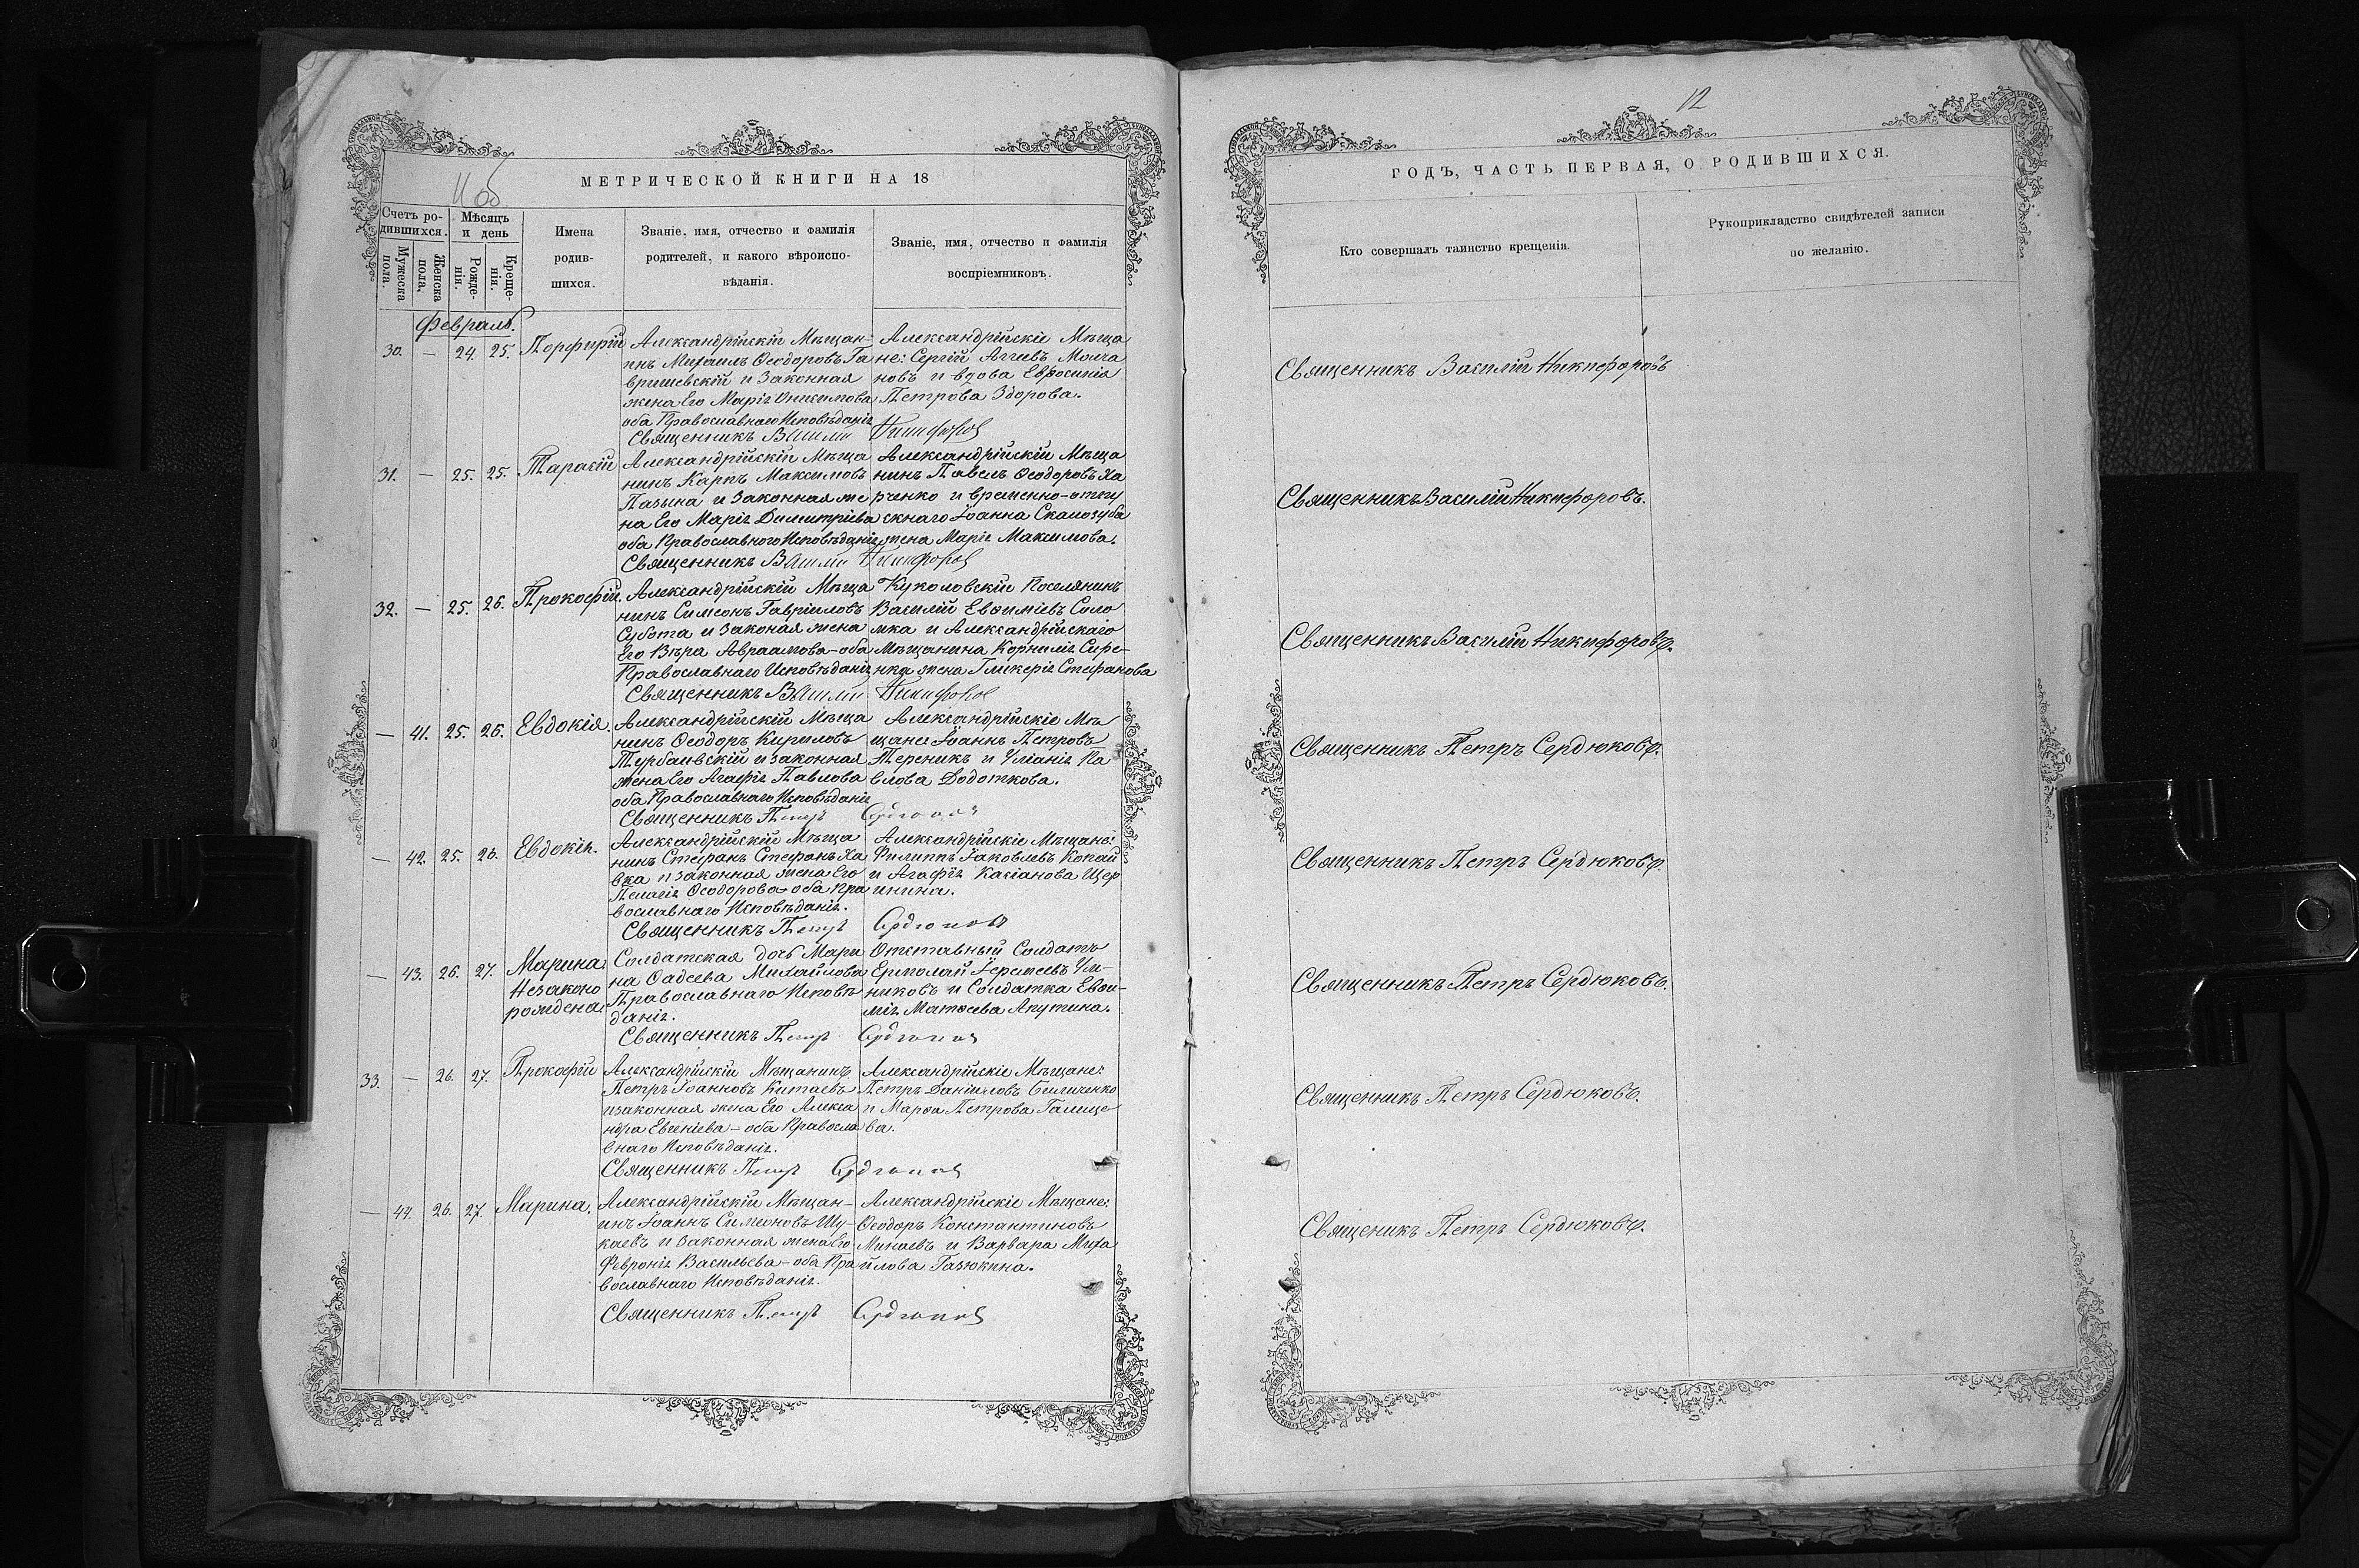 МЕТРИЧЕСКОЙ КНИГИ НА 18
Счетъ ро-
дившихся.
Мужеска
пола.
Женска
пола.
Мѣсяцъ
и день
Рожде-
нія.
Креще-
нія.
Имена
родив-
шихся.
Званіе, имя, отчество и фамилія
родителей, и какого вѣроиспо-
вѣданія.
Званіе, имя, отчество и фамилія
воспріемниковъ.
Февраль.
30. — 24. 25. Порфирій
Александрійскій Мѣщан-
инъ Михаилъ Ѳеодоровъ Га
вришевскій и Законная
жена Его Марія Онисимова
оба Православнаго Исповѣданія
Александрійскіе Мѣща
не: Сергій Аггеевъ Молча
новъ и вдова Евфросинія
Петрова Здорова.
Священникъ Василій Никифоров
31. — 25. 25. Тарасій
Александрійскій Мѣща
нинъ Карпъ Максимовъ
Пазына и Законная же
на Его Марія Димитріева
оба Православнаго Исповѣданія
Александрійскій Мѣща
нинъ Павелъ Ѳеодоровъ Ха
рченко и временно-отпу
скнаго Іоанна Скалозуба
жена Марія Максимова.
Священникъ Василій Никифоров
32. — 25. 26. Прокофій.
Александрійскій Мѣща
нинъ Симеонъ Гавріиловъ
Субота и Законая жена
Его Вѣра Авраамова-оба
Православнаго Исповѣданія
Куколовскій Поселянинъ
Василій Евѳиміевъ Соло
мка и Александрійскаго
Мѣщанина Корнилія Сире-
нка жена Гликерія Стефанова
Священникъ Василій Никифоров
— 41. 25. 26. Евдокія.
Александрійскій Мѣща
нинъ Ѳеодоръ Кириловъ
Турбаивскій и законная
жена Его Агафія Павлова
оба Православнаго Исповѣданія
Александрійскіе Мѣ
щане: Іоаннъ Петровъ
Тереникъ и Уліанія Па
влова Додоткова.
Священникъ Петръ Сердюков
— 42. 25. 26. Евдокія.
Александрійскій Мѣща
нинъ Стефанъ Стефанъ Ха
вка и законная жена Его
Пелагія Ѳеодорова-оба Пра
вославнаго Исповѣданія.
Александрійскіе Мѣщане:
Филиппъ Іаковлевъ Копай
и Агафія Касіанова Щер
инина.
Священникъ Петръ Сердюков
— 43. 26. 27. Марина
Незаконо
рождена
Солдатская дочь Мари
на Ѳадеева Михайлова
Православнаго Исповѣ
данія.
Отставный Солдатъ
Ермолай Іеремеевъ Ум-
никовъ и Солдатка Евѳи-
мія Матѳеева Апутина.
Священникъ Петръ Сердюков
33. — 26. 27. Прокофій
Александрійскій Мѣщанинъ
Петръ Іоанновъ Китаевъ
изаконная жена Его Алекса
ндра Евгеніева-оба Правосла
внаго Исповѣданія.
Александрійскіе Мѣщане:
Петръ Даніиловъ Биличенко
и Марѳа Петрова Галище
ва.
Священникъ Петръ Сердюков
— 44. 26. 27. Марина.
Александрійскій Мѣщан-
инъ Іоаннъ Симеоновъ Шу-
каевъ и Законная жена Его
Февронія Васильева-оба Пра
вославнаго Исповѣданія.
Александрійскіе Мѣщане:
Ѳеодоръ Константиновъ
Минаевъ и Варвара Миха
йлова Газюкина.
Священникъ Петръ Сердюков
12
ГОДЪ, ЧАСТЬ ПЕРВАЯ, О РОДИВШИХСЯ.
Кто совершалъ таинство крещенія.
Рукоприкладство свидѣтелей записи
по желанію.
Священникъ Василій Никифоровъ
Священникъ Василій Никифоровъ.
Священникъ Василій Никифоровъ.
Священникъ Петръ Сердюковъ.
Священникъ Петръ Сердюковъ.
Священникъ Петръ Сердюковъ.
Священникъ Петръ Сердюковъ.
Священикъ Петръ Сердюковъ.